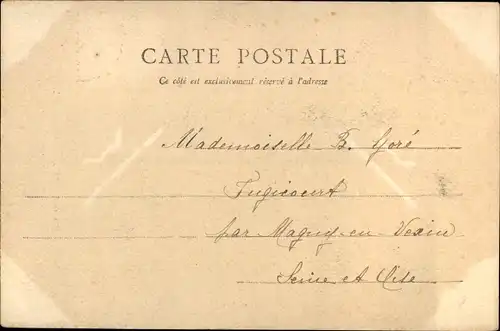 CARTE POSTALE
Ce côté est exclusivement réservé à l'adresse
Mademoiselle B. Goré
par Magny-en-Vexin
Seine et Oise